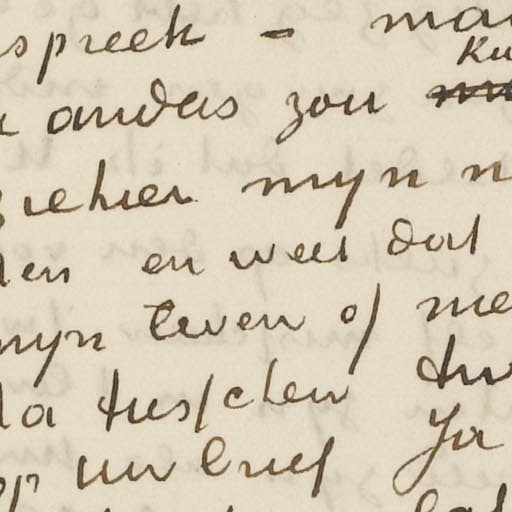 spreek – maa
Ku
anders zou
ziehier mijn n
en en weet dat
mijn leven of me
da tusschen tw
op uw brief Ja